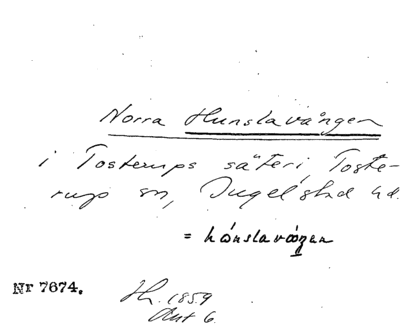 Norra Hunslavången
i Tosterups säteri, Toste-
rup sn, Ingelstad hd.
= hónslavóᶇen
Nr 7674.
Hh. 1859
Akt 6.